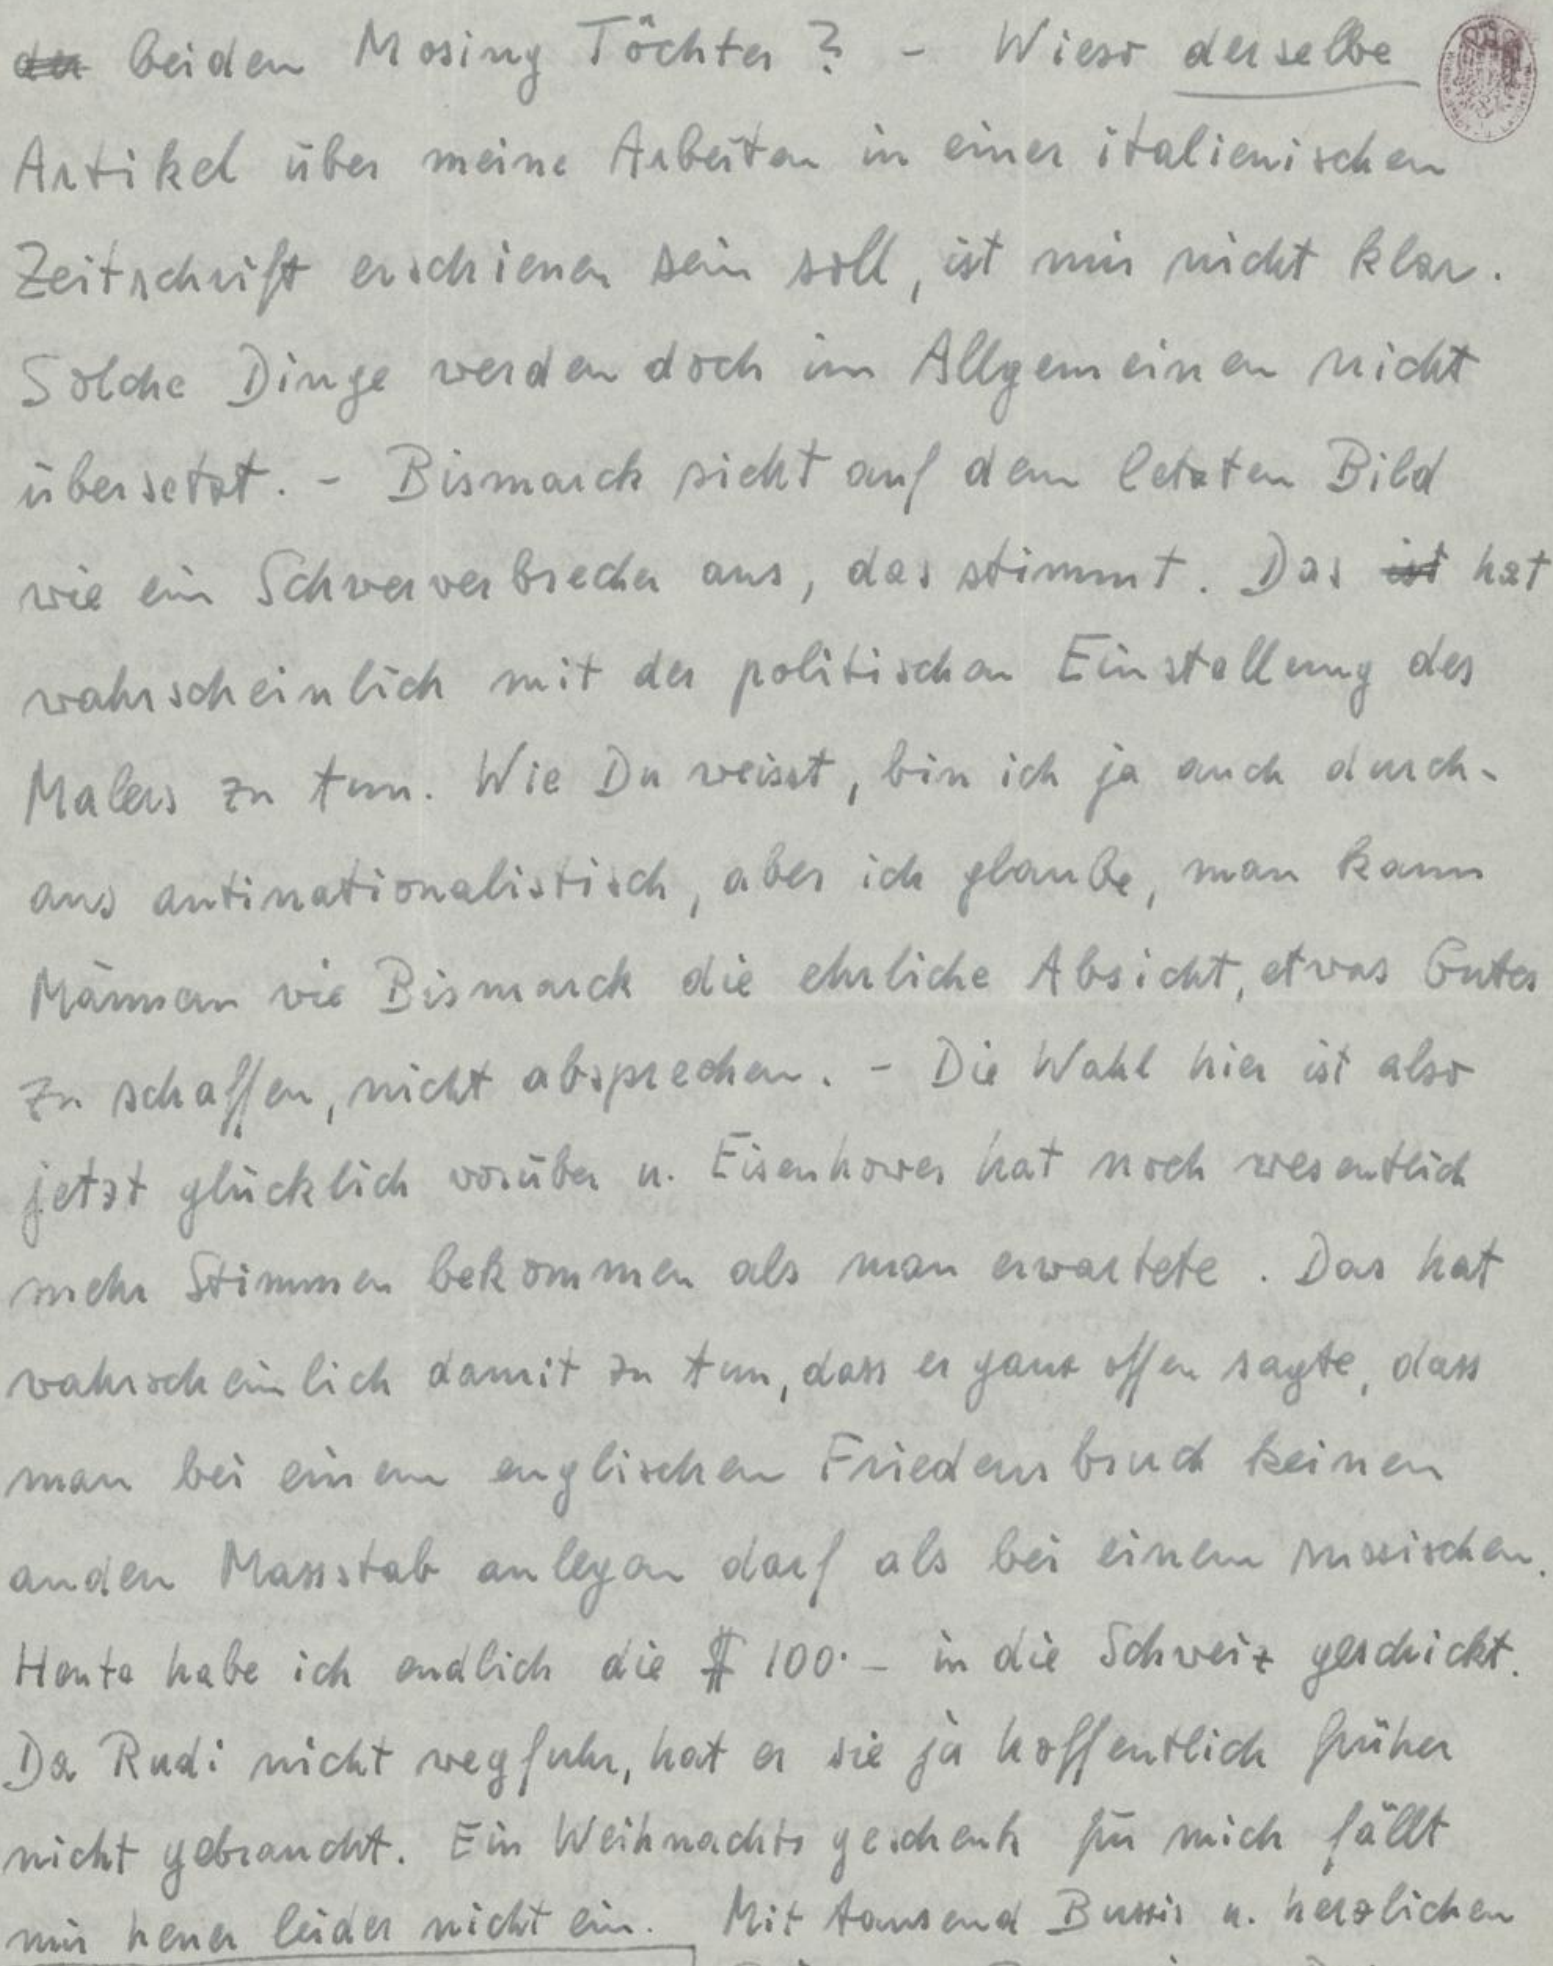 der beiden Mosing Töchter? - Wieso derselbe
Artikel über meine Arbeiten in einer italienischen
Zeitschrift erschienen sein soll, ist mir nicht klar.
Solche Dinge werden doch im Allgemeinen nicht
übersetzt. - Bismarck sieht auf dem letzten Bild
wie ein Schwerverbrecher aus, das stimmt. Das ist hat
wahrscheinlich mit der politischen Einstellung des
Malers zu tun. Wie Du weisst, bin ich ja auch durch-
aus antinationalistisch, aber ich glaube, man kann
Männern wie Bismarck die ehrliche Absicht, etwas Gutes
zu schaffen, nicht absprechen. - Die Wahl hier ist also
jetzt glücklich vorüber u. Eisenhower hat noch wesentlich
mehr Stimmen bekommen als man erwartete. Das hat
wahrscheinlich damit zu tun, dass er ganz offen sagte, dass
man bei einem englischen Friedensbruch keinen
andern Massstab anlegen darf als bei einem russischen.
Heute habe ich endlich die $ 100.- in die Schweiz geschickt.
Da Rudi nicht wegfuhr, hat er sie ja hoffentlich früher
nicht gebraucht. Ein Weihnachtsgeschenk für mich fällt
mir heuer leider nicht ein. Mit tausend Bussis u. herzlichen